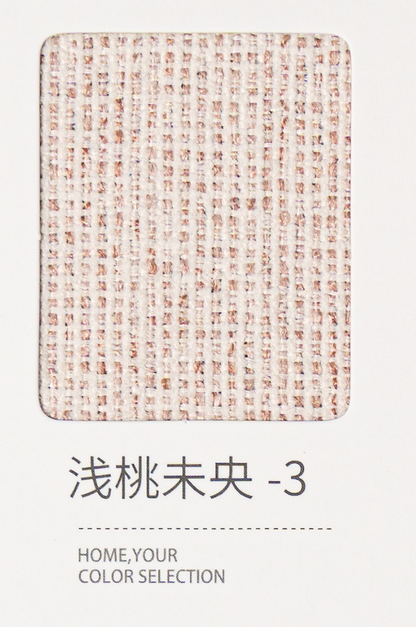 浅桃未央 -3
HOME,YOUR
COLOR SELECTION